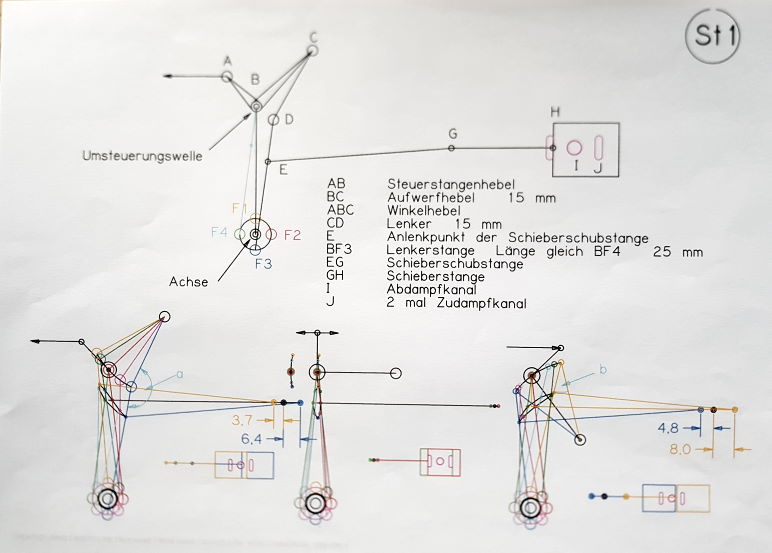 St 1
C
A
B
D
H
G
Umsteuerungswelle
E
I
J
AB Steuerstangenhebel
BC Aufwerfhebel 15 mm
ABC Winkelhebel
CD Lenker 15 mm
E Anlenkpunkt der Schieberschubstange
BF3 Lenkerstange Länge gleich BF4 25 mm
EG Schieberschubstange
GH Schieberstange
I Abdampfkanal
J 2 mal Zudampfkanal
F1
F4
F2
F3
Achse
a
b
3.7
6.4
4.8
8.0